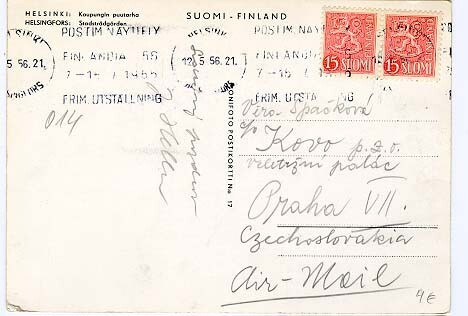 HELSINKI: Kaupungin puutarha
HELSINGFORS: Stadsträdgården
SUOMI - FINLAND
POSTIM.NÄYTTELY
FINLANDIA 56
7-15.7.1956
FRIM.UTSTÄLLNING
HELSINKI
12.5 56.21
HELSINGFORS
POSTIM.NÄY
FINLAN
7-15
FRIM. UTSTÄ NING
15 SUOMI
15 SUOMI
014
Srdečný pozdrav
BONIFOTO POSTIKORTTI No 17
Věra Špačková
c/o
Kovo p.z.o.
Veletržní palác
Praha VII.
Czechoslovakia
Air-Mail
4€